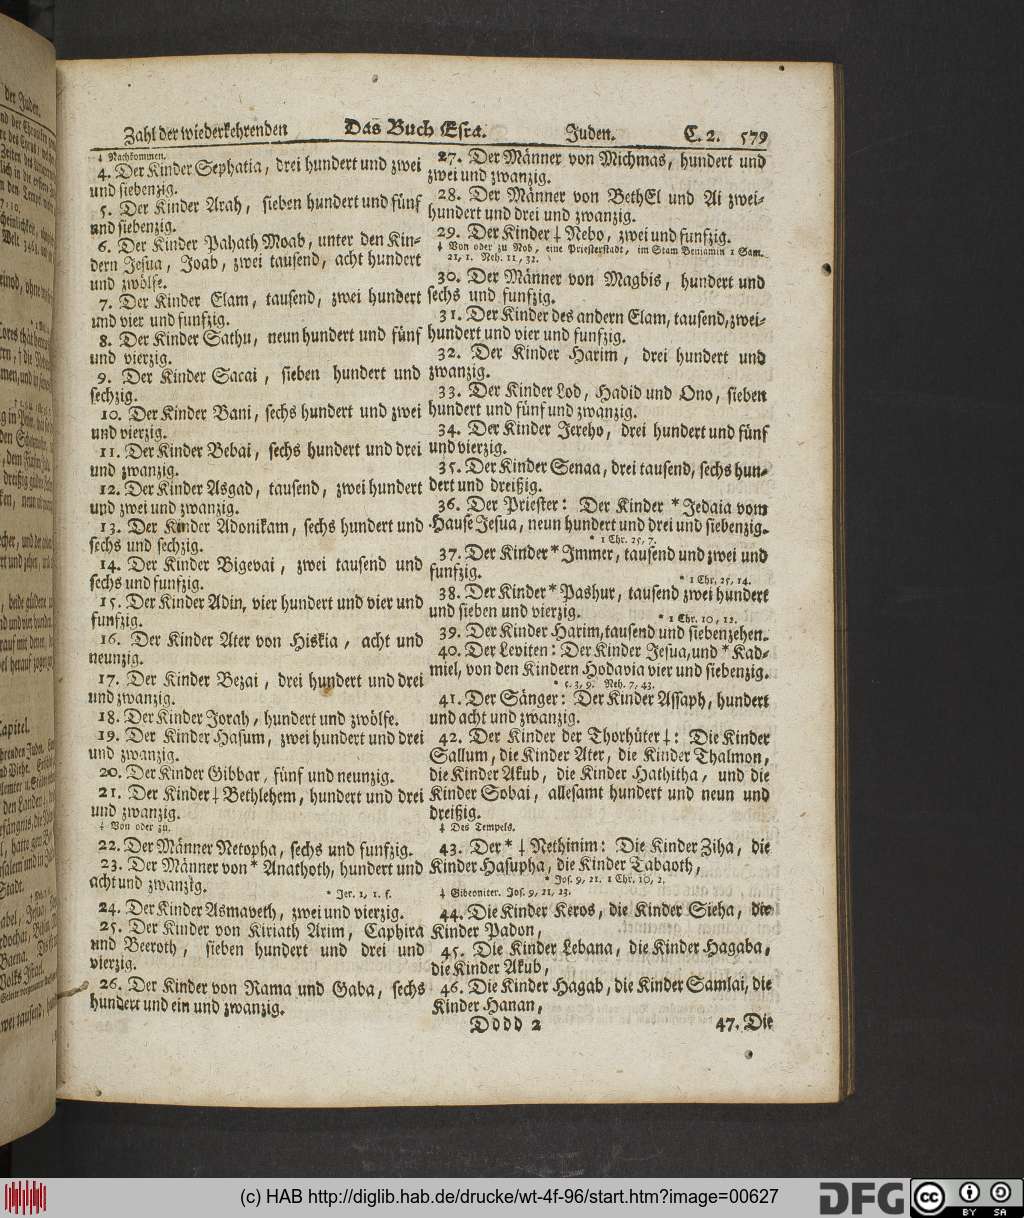 Zahl der wiederkehrenden Das Buch Esra. Juden. C. 2. 579
‡ Nachkommen.
4. Der Kinder Sephatia, drei hundert und zwei
und siebenzig.
5. Der Kinder Arah, sieben hundert und fünf
und siebenzig.
6. Der Kinder Pahath Moab, unter den Kin-
dern Jesua, Joab, zwei tausend, acht hundert
und zwölfe.
7. Der Kinder Elam, tausend, zwei hundert
und vier und funfzig.
8. Der Kinder Sathu, neun hundert und fünf
und vierzig.
9. Der Kinder Sacai, sieben hundert und
sechzig.
10. Der Kinder Bani, sechs hundert und zwei
und vierzig.
11. Der Kinder Bebai, sechs hundert und drei
und zwanzig.
12. Der Kinder Asgad, tausend, zwei hundert
und zwei und zwanzig.
13. Der Kinder Adonikam, sechs hundert und
sechs und sechzig.
14. Der Kinder Bigevai, zwei tausend und
sechs und funfzig.
15. Der Kinder Adin, vier hundert und vier und
funfzig.
16. Der Kinder Ater von Hiskia, acht und
neunzig.
17. Der Kinder Bezai, drei hundert und drei
und zwanzig.
18. Der Kinder Jorah, hundert und zwölfe.
19. Der Kinder Hasum, zwei hundert und drei
und zwanzig.
20. Der Kinder Gibbar, fünf und neunzig.
21. Der Kinder ‡ Bethlehem, hundert und drei
und zwanzig.
‡ Von oder zu.
22. Der Männer Netopha, sechs und funfzig.
23. Der Männer von * Anathoth, hundert und
acht und zwanzig.
* Jer. 1, 1. s.
24. Der Kinder Asmaveth, zwei und vierzig.
25. Der Kinder von Kiriath Arim, Caphira
und Beeroth, sieben hundert und drei und
vierzig.
26. Der Kinder von Rama und Gaba, sechs
hundert und ein und zwanzig.
27. Der Männer von Michmas, hundert und
zwei und zwanzig.
28. Der Männer von BethEl und Ai zwei-
hundert und drei und zwanzig.
29. Der Kinder ‡ Nebo, zwei und funfzig.
‡ Von oder zu Nob, eine Priesterstadt, im Stam Benjamin 1 Sam.
21, 1. Neh. 11, 32.
30. Der Männer von Magbis, hundert und
sechs und funfzig.
31. Der Kinder des andern Elam, tausend, zwei-
hundert und vier und funfzig.
32. Der Kinder Harim, drei hundert und
zwanzig.
33. Der Kinder Lod, Hadid und Ono, sieben
hundert und fünf und zwanzig.
34. Der Kinder Jereho, drei hundert und fünf
und vierzig.
35. Der Kinder Senaa, drei tausend, sechs hun-
dert und dreißig.
36. Der Priester: Der Kinder * Jedaia vom
Hause Jesua, neun hundert und drei und siebenzig.
* 1 Chr. 25, 7.
37. Der Kinder * Immer, tausend und zwei und
funfzig.
* 1 Chr. 25, 14.
38. Der Kinder * Pashur, tausend zwei hundert
und sieben und vierzig.
* 1 Chr. 10, 12.
39. Der Kinder Harim, tausend und siebenzehen.
40. Der Leviten: Der Kinder Jesua, und * Kad-
miel, von den Kindern Hodavia vier und siebenzig.
* c. 3, 9. Neh. 7, 43.
41. Der Sänger: Der Kinder Assaph, hundert
und acht und zwanzig.
42. Der Kinder der Thorhüter ‡: Die Kinder
Sallum, die Kinder Ater, die Kinder Thalmon,
die Kinder Akub, die Kinder Hathitha, und die
Kinder Sobai, allesamt hundert und neun und
dreißig.
‡ Des Tempels.
43. Der * ‡ Nethinim: Die Kinder Ziha, die
Kinder Hasupha, die Kinder Tabaoth,
* Jos. 9, 21. 1 Chr. 10, 2.
‡ Gibeoniter. Jos. 9, 21, 23.
44. Die Kinder Keros, die Kinder Sieha, die
Kinder Padon,
45. Die Kinder Lebana, die Kinder Hagaba,
die Kinder Akub,
46. Die Kinder Hagab, die Kinder Samlai, die
Kinder Hanan,
Dddd 2 47. Die
(c) HAB http://diglib.hab.de/drucke/wt-4f-96/start.htm?image=00627
DFG cc BY SA